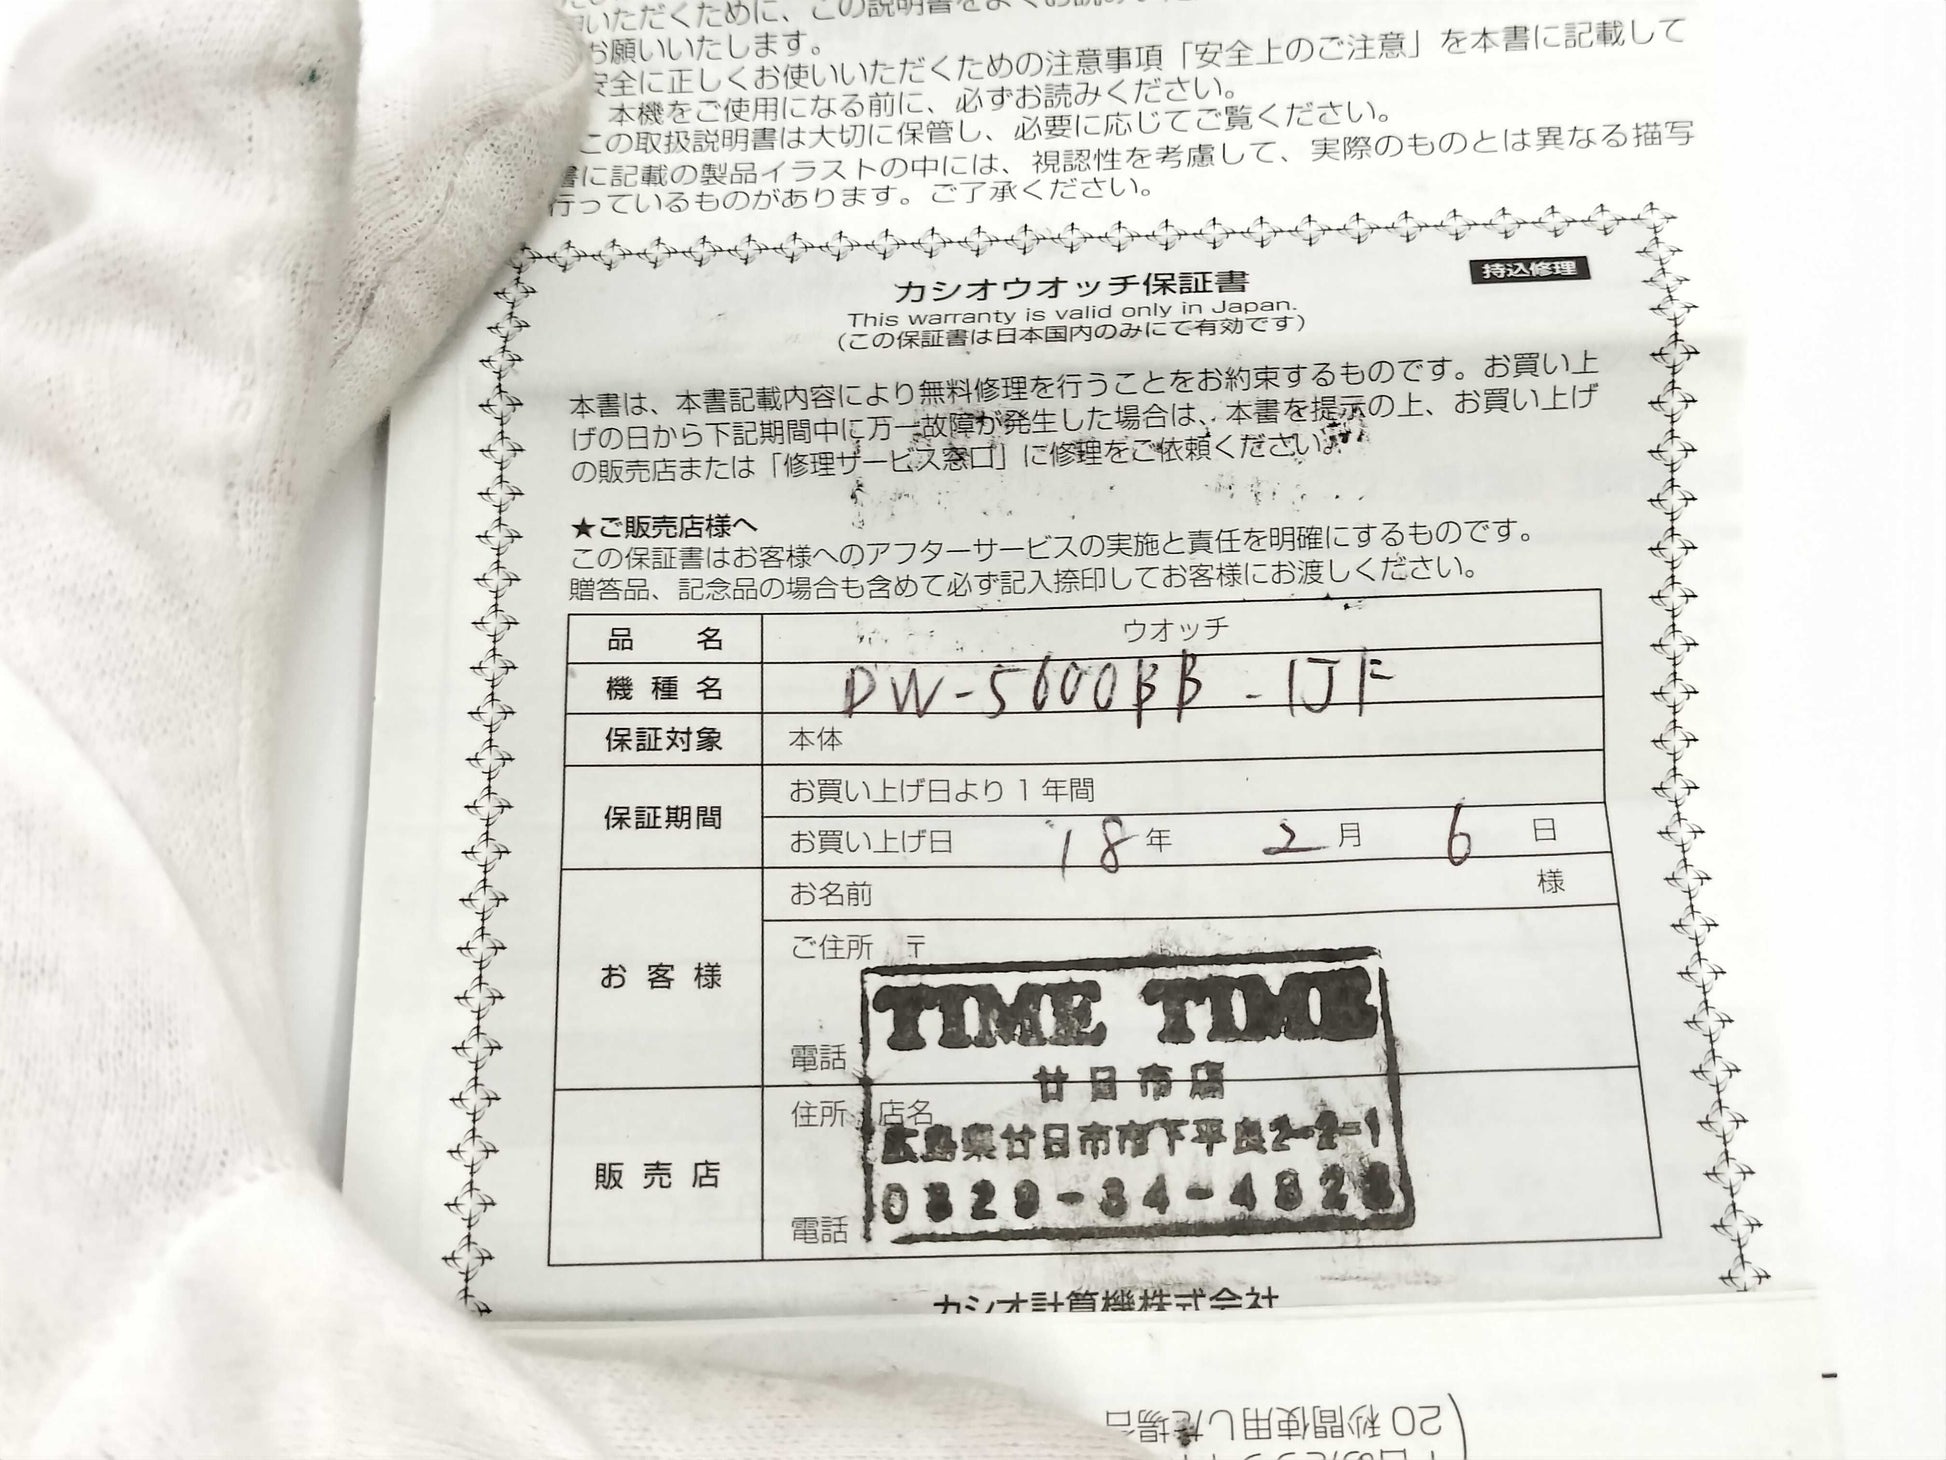 いただくために、この説明書をよくお読み
お願いいたします。
安全に正しくお使いいただくための注意事項「安全上のご注意」を本書に記載して
本機をご使用になる前に、必ずお読みください。
この取扱説明書は大切に保管し、必要に応じてご覧ください。
書に記載の製品イラストの中には、視認性を考慮して、実際のものとは異なる描写
行っているものがあります。ご了承ください。
持込修理
カシオウオッチ保証書
This warranty is valid only in Japan.
(この保証書は日本国内のみにて有効です)
本書は、本書記載内容により無料修理を行うことをお約束するものです。お買い上
げの日から下記期間中に万一故障が発生した場合は、本書を提示の上、お買い上げ
の販売店または「修理サービス窓口」に修理をご依頼ください。
★ご販売店様へ
この保証書はお客様へのアフターサービスの実施と責任を明確にするものです。
贈答品、記念品の場合も含めて必ず記入捺印してお客様にお渡しください。
品名 ウオッチ
機種名 DW-5600BB-1JF
保証対象 本体
保証期間 お買い上げ日より1年間
お買い上げ日 18年 2月 6日
お客様 お名前 様
ご住所 〒
電話
販売店 住所・店名
電話
TIME TIME
廿日市店
広島県廿日市市下平良2-2-1
0829-34-4828
カシオ計算機株式会社
20秒間使用した場合